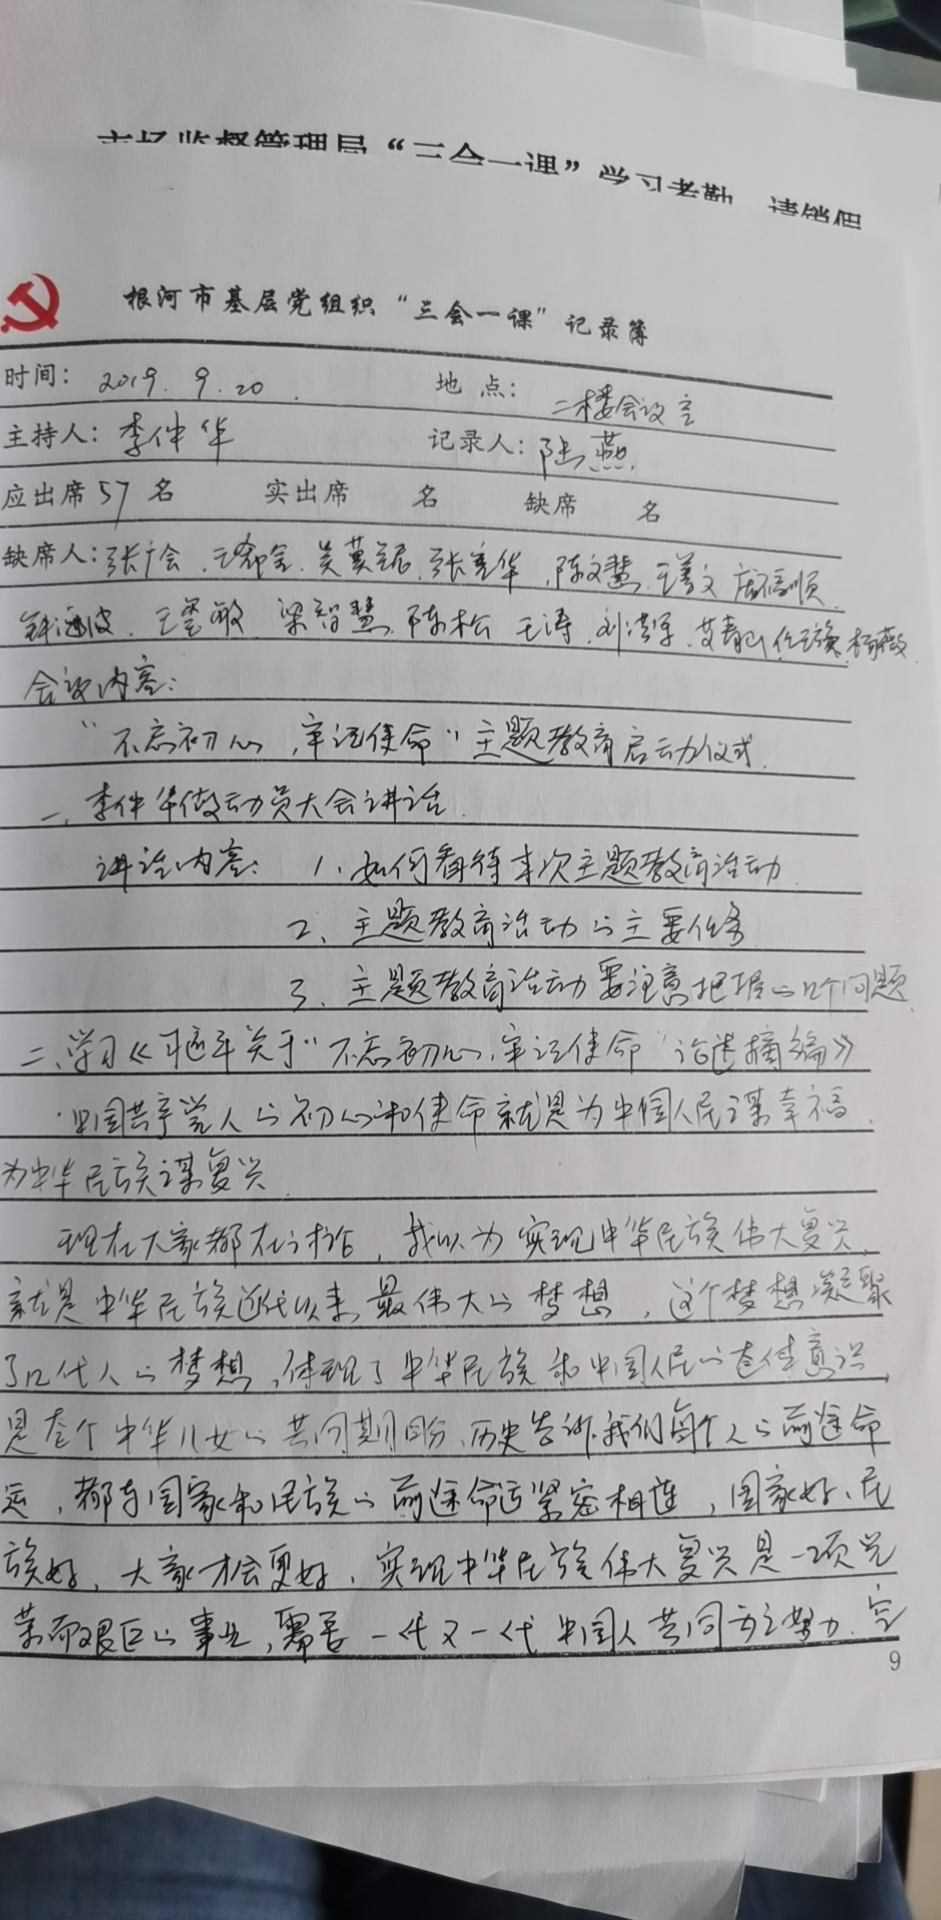 市场监督管理局“三会一课”学习考勤、请销假
根河市基层党组织“三会一课”记录簿
时间: 2019.9.20. 地点: 二楼会议室
主持人: 李仲华 记录人: 陆燕.
应出席57名 实出席 名 缺席 名
缺席人: 张广会. 张宪华. 陈文慧.
梁智慧. 陈松 王涛. 刘洪军. 杨薇.
会议内容:
“不忘初心,牢记使命”主题教育启动仪式.
一、李仲华做动员大会讲话.
讲话内容: 1、如何看待本次主题教育活动.
2、主题教育活动的主要任务
3、主题教育活动要注意把握的几个问题.
二、学习《习近平关于“不忘初心、牢记使命”论述摘编》
中国共产党人的初心和使命就是为中国人民谋幸福.
为中华民族谋复兴.
现在大家都在讨论, 我以为实现中华民族伟大复兴,
就是中华民族近代以来最伟大的梦想, 这个梦想凝聚
了几代人的梦想, 体现了中华民族和中国人民的整体意识,
是每个中华儿女的共同期盼、历史告诉我们每个人的前途命
运, 都与国家和民族的前途命运紧密相连, 国家好、民
族好, 大家才会更好, 实现中华民族伟大复兴是一项光
荣而艰巨的事业, 需要一代又一代中国人共同为之努力. 空
9